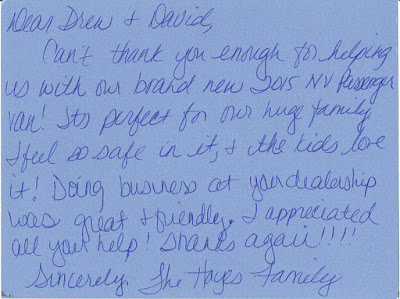 Dear Drew & David,
Can't thank you enough for helping
us with our brand new 2015 NV Passenger
van! Its perfect for our huge family
I feel so safe in it, & the kids love
it! Doing business at your dealership
was great & friendly. I appreciated
all your help! Thanks again!!!!
Sincerely. The Hayes Family